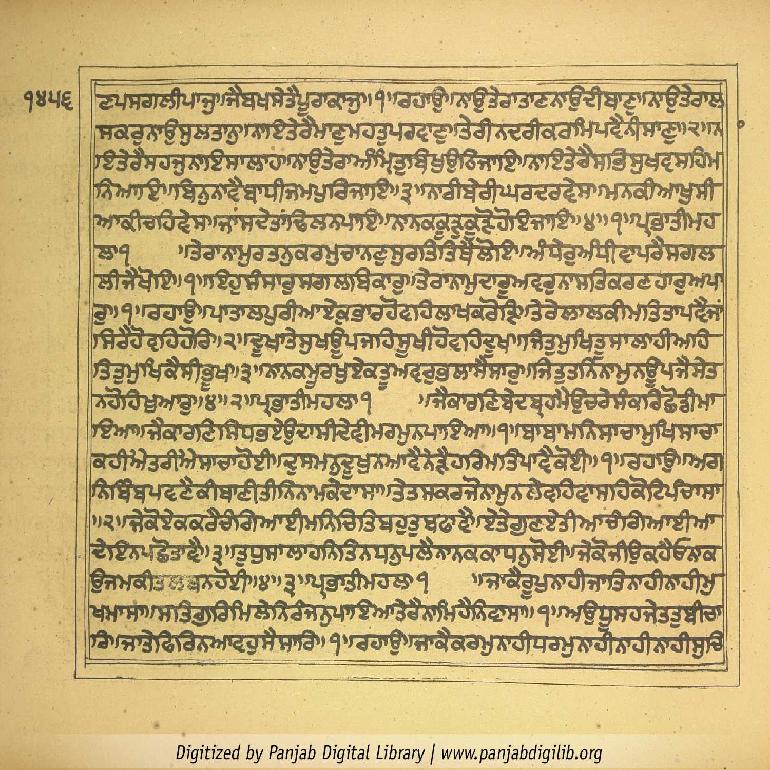 ੧੪੫੬
ਣਪਸਗਲੀਪਾਜੁ॥ਜੈਬਖਸੇਤੈਪੂਰਾਕਾਜੁ॥੧॥ਰਹਾਉ॥ਨਾਉਤੇਰਾਤਾਣਨਾਉਦੀਬਾਣੁ॥ਨਾਉਤੇਰਾਲ
ਸਕਰੁਨਾਉਸੁਲਤਾਨੁ॥ਨਾਇਤੇਰੈਮਾਣੁਮਹਤੁਪਰਵਾਣੁ॥ਤੇਰੀਨਦਰੀਕਰਮਿਪਵੈਨੀਸਾਣੁ॥੨॥ਨ
ਾਇਤੇਰੈਸਹਜੁਨਾਇਸਾਲਾਹ॥ਨਾਉਤੇਰਾਅੰਮ੍ਰਿਤੁਬਿਖੁਉਠਿਜਾਇ॥ਨਾਇਤੇਰੈਸਭਿਸੁਖਵਸਹਿਮ
ਨਿਆਇ॥ਬਿਨੁਨਾਵੈਬਾਧੀਜਮਪੁਰਿਜਾਇ॥੩॥ਨਾਰੀਬੇਰੀਘਰਦਰਦੇਸ॥ਮਨਕੀਆਖੁਸੀ
ਆਕੀਚਹਿਵੇਸ॥ਜਾਂਸਦੇਤਾਂਢਿਲਨਪਾਇ॥ਨਾਨਕਕੂੜੁਕੂੜੋਹੋਇਜਾਇ॥੪॥੧॥ਪ੍ਰਭਾਤੀਮਹ
ਲਾ੧ ॥ਤੇਰਾਨਾਮੁਰਤਨੁਕਰਮੁਚਾਨਣੁਸੁਰਤਿਤਿਥੈਲੋਇ॥ਅੰਧੇਰੁਅੰਧੀਵਾਪਰੈਸਗਲ
ਲੀਜੈਖੋਇ॥੧॥ਇਹੁਸੰਸਾਰੁਸਗਲਬਿਕਾਰੁ॥ਤੇਰਾਨਾਮੁਦਾਰੂਅਵਰੁਨਾਸਤਿਕਰਣਹਾਰੁਅਪਾ
ਰੁ॥੧॥ਰਹਾਉ॥ਪਾਤਾਲਪੁਰੀਆਏਕਭਾਰਹੋਵਹਿਲਾਖਕਰੋੜਿ॥ਤੇਰੇਲਾਲਕੀਮਤਿਤਾਪਵੈਜਾਂ
ਸਿਰੈਹੋਵਹਿਹੋਰਿ॥੨॥ਦੂਖਾਤੇਸੁਖਊਪਜਹਿਸੂਖੀਹੋਵਹਿਦੂਖ॥ਜਿਤੁਮੁਖਿਤੂਸਾਲਾਹੀਅਹਿ
ਤਿਤੁਮੁਖਿਕੈਸੀਭੂਖ॥੩॥ਨਾਨਕਮੂਰਖੁਏਕੁਤੂਅਵਰੁਭਲਾਸੈਸਾਰੁ॥ਜਿਤੁਤਨਿਨਾਮੁਨਊਪਜੈਸੇਤ
ਨਹੋਹਿਖੁਆਰੁ॥੪॥੨॥ਪ੍ਰਭਾਤੀਮਹਲਾ੧ ॥ਜੈਕਾਰਣਿਬੇਦਬ੍ਰਹਮੈਉਚਰੇਸੰਕਰਿਛੋਡੀਮਾ
ਇਆ॥ਜੈਕਾਰਣਿਸਿਧਭਏਉਦਾਸੀਦੇਵੀਮਰਮੁਨਪਾਇਆ॥੧॥ਬਾਬਾਮਨਿਸਾਚਾਮੁਖਿਸਾਚਾ
ਕਹੀਐਤਰੀਐਸਾਚਾਹੋਈ॥ਦੁਸਮਨੁਦੂਖੁਨਆਵੈਨੇੜੈਹਰਿਮਤਿਪਾਵੈਕੋਈ॥੧॥ਰਹਾਉ॥ਅਗ
ਨਿਬਿੰਬਪਵਣੈਕੀਬਾਣੀਤੀਨਿਨਾਮਕੇਦਾਸਾ॥ਤੇਤਸਕਰਜੋਨਾਮੁਨਲੇਵਹਿਵਾਸਹਿਕੋਟਪੰਚਾਸਾ
॥੨॥ਜੇਕੋਏਕਕਰੈਚੰਗਿਆਈਮਨਿਚਿਤਿਬਹੁਤੁਬਫਾਵੈ॥ਏਤੇਗੁਣਏਤੀਆਚੰਗਿਆਈਆ
ਦੇਇਨਪਛੋਤਾਵੈ॥੩॥ਤੁਧੁਸਾਲਾਹਨਿਤਿਨਧਨੁਪਲੈਨਾਨਕਕਾਧਨੁਸੋਈ॥ਜੇਕੋਜੀਉਕਹੈਓਨਕ
ਉਜਮਕੀਤਲਬਨਹੋਈ॥੪॥੩॥ਪ੍ਰਭਾਤੀਮਹਲਾ੧ ॥ਜਾਕੈਰੂਪੁਨਾਹੀਜਾਤਿਨਾਹੀਨਾਹੀਮੁ
ਖਮਾਸਾ॥ਸਤਿਗੁਰਿਮਿਲੇਨਿਰੰਜਨੁਪਾਇਆਤੇਰੈਨਾਮਿਹੈਨਿਵਾਸਾ॥੧॥ਅਉਧੂਸਹਜੇਤਤੁਬੀਚਾ
ਰਿ॥ਜਾਤੇਫਿਰਿਨਆਵਹੁਸੈਸਾਰਿ॥੧॥ਰਹਾਉ॥ਜਾਕੈਕਰਮੁਨਾਹੀਧਰਮੁਨਾਹੀਨਾਹੀਨਾਹੀਸੁਚਿ
Digitized by Panjab Digital Library | www.panjabdigilib.org